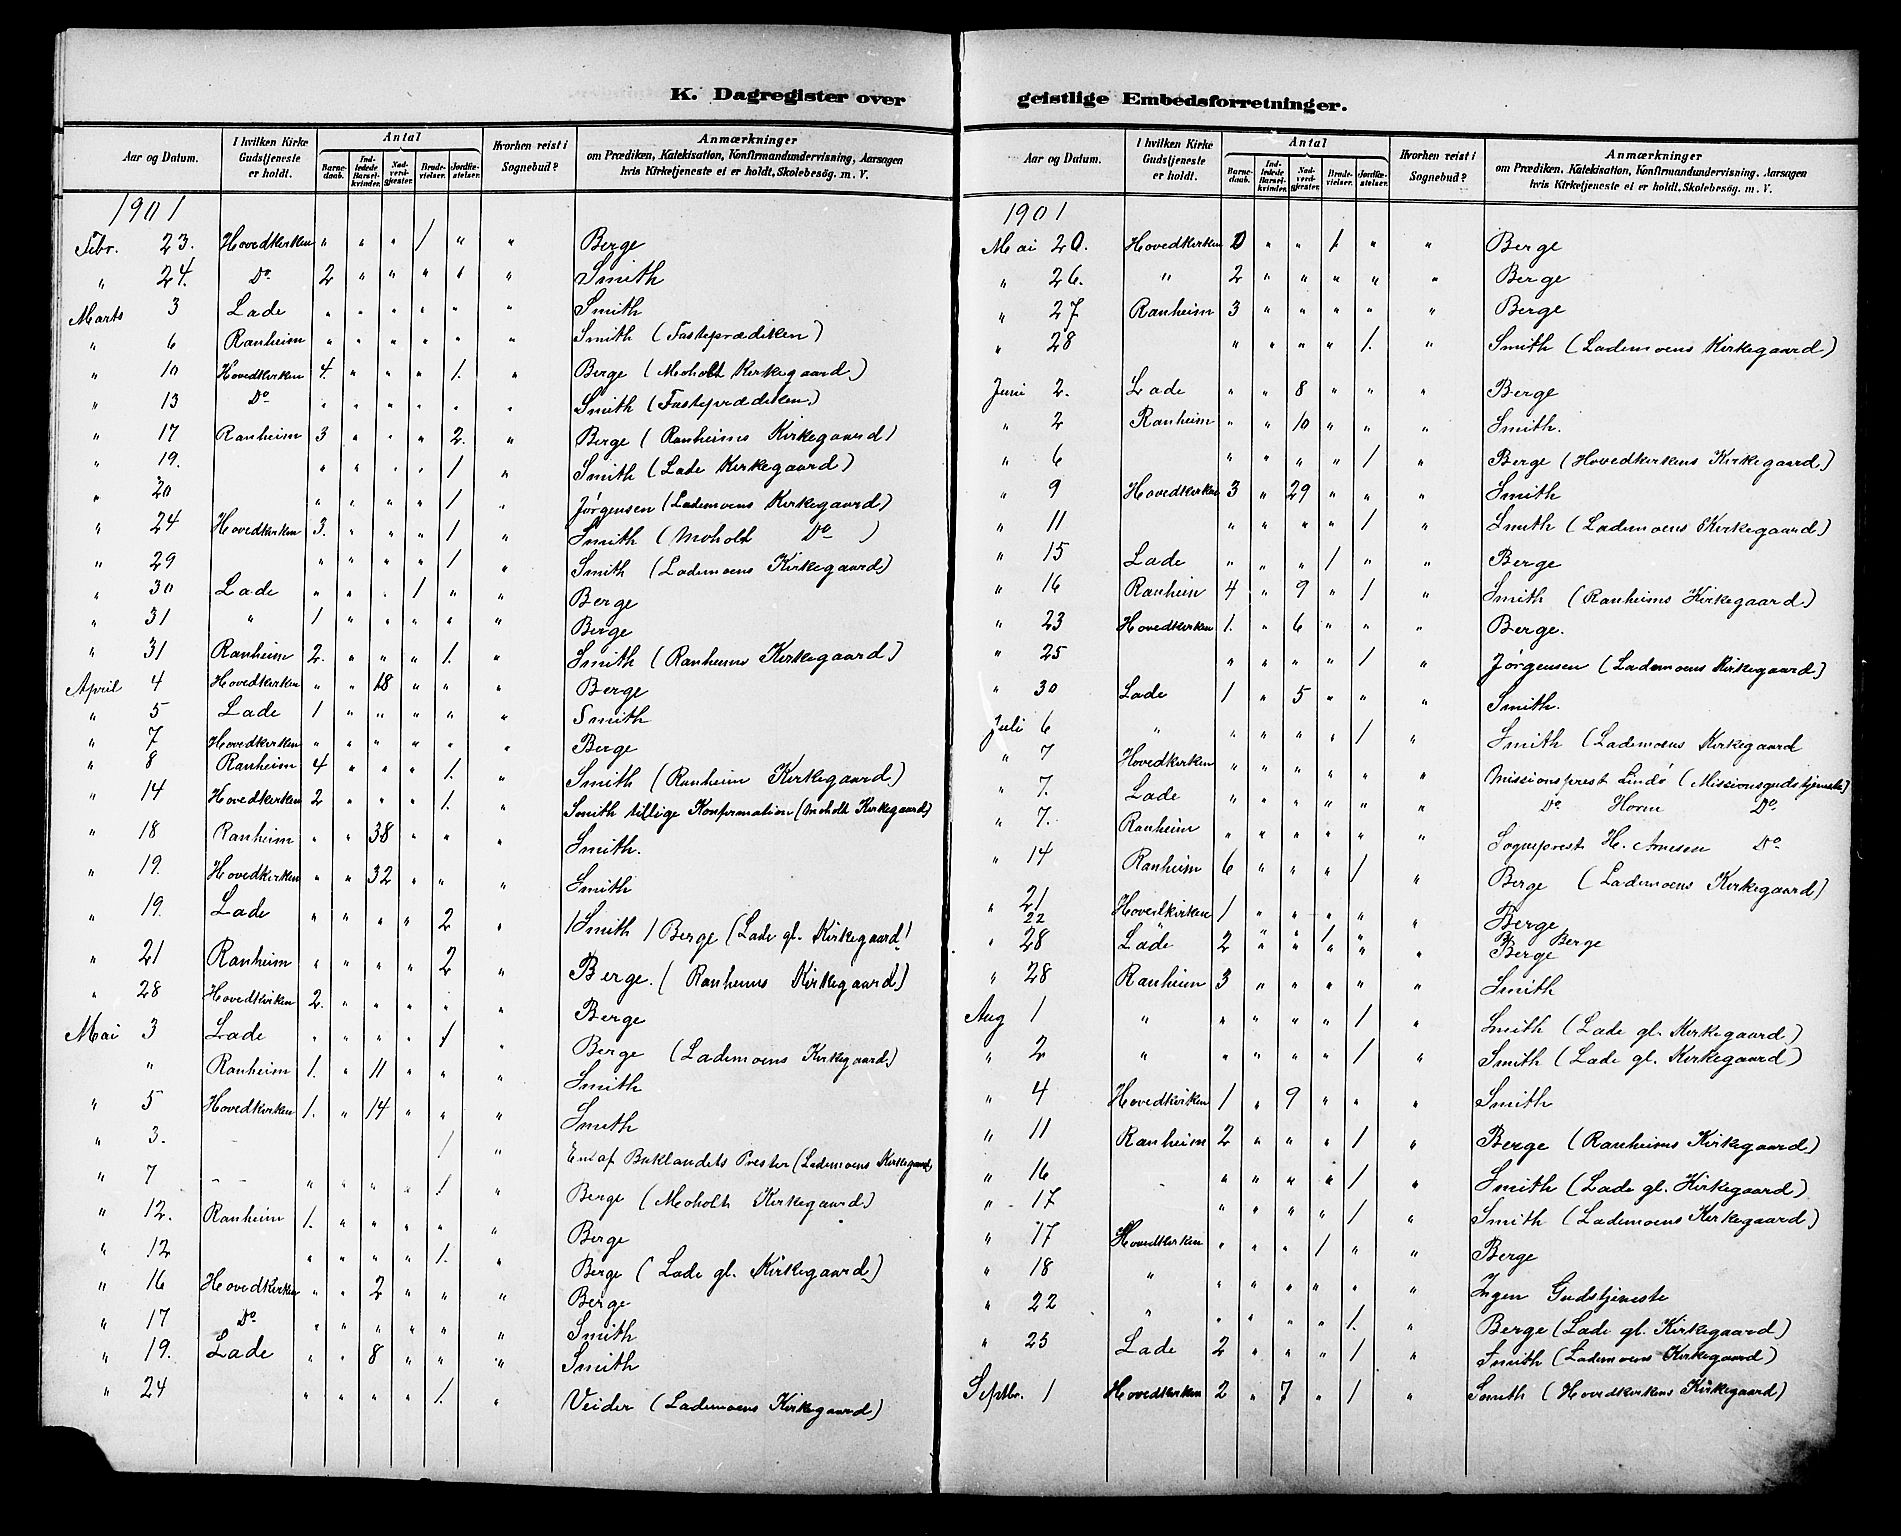 K. Dagregister over
Aar og Datum. | I hvilken Kirke Gudstjeneste er holdt. | Antal | Barnedaab. | Indledede Barselkvinder. | Nadverdgjester. | Brudevielser. | Jordfæstelser. | Hvorhen reist i Sognebud? | Anmærkninger om Prædiken, Katekisation, Konfirmandundervisning, Aarsagen hvis Kirketjeneste ei er holdt, Skolebesøg. m. V.
1901
Febr. 23. Hovedkirken " " " 1 " " Berge
" 24. Do 2 " " " " " Smith
Marts 3 Lade " " " " " " Smith
" 6 Ranheim " " " " " " Smith (Fasteprædiken)
" 10 Hovedkirken 4. " " " 1. " Berge (Moholt Kirkegaard)
" 13 Do " " " " " " Smith (Fasteprædiken)
" 17 Ranheim 3 " " " 2. " Berge (Ranheims Kirkegaard)
" 19. " " " " 1 " Smith (Lade Kirkegaard)
" 20 " " " " 1 " Jørgensen (Lademoens Kirkegaard)
" 24 Hovedkirken 3. " " " 1 " Smith (Moholt Do )
" 29 " " " " 1 " Smith (Lademoens Kirkegaard)
" 30 Lade " " " 1 " " Berge
" 31 " 1 " " " " " Berge
" 31 Ranheim 2. " " " 1. " Smith (Ranheims Kirkegaard)
April 4 Hovedkirken " " 18 " " " Berge
" 5 Lade 1 " " " " " Smith
" 7 Hovedkirken " " " " " " Berge
" 8 Ranheim 4 " " " 1. " Smith (Ranheim Kirkegaard)
" 14 Hovedkirken 2 " " " 1. " Smith tillige Konfirmation (Moholt Kirkegaard)
" 18 Ranheim " " 38 " " " Smith.
" 19. Hovedkirken " " 32 " " " Smith
" 19. Lade " " " " 2 " 1 Smith 1 Berge (Lade gl. Kirkegaard)
" 21 Ranheim " " " " 2 " Berge. (Ranheims Kirkegaard)
" 28 Hovedkirken 2. " " " " " Berge
Mai 3 Lade " " " " 1 " Berge (Lademoens Kirkegaard)
" Ranheim 1. " 11 " " " Smith
" 5 Hovedkirken 1. " 14 " " " Smith
" 3. 1 " En af Baklandets Prester (Lademoens Kirkegaard)
" 7 " " " " 1 " Berge (Moholt Kirkegaard)
" 12. Ranheim 1. " " " " " Berge
" 12 " " " " 1. " Berge (Lade gl. Kirkegaard)
" 16 Hovedkirken " " 2 " " " Berge
" 17 Do " " " " " " Smith
" 19. Lade " " 8 " " " Smith
" 24 " " " " 1. " Veider (Lademoens Kirkegaard)
geistlige Embedsforretninger.
Aar og Datum. | I hvilken Kirke Gudstjeneste er holdt. | Antal | Barnedaab. | Indledede Barselkvinder. | Nadverdgjester. | Brudevielser. | Jordfæstelser. | Hvorhen reist i Sognebud? | Anmærkninger om Prædiken, Katekisation, Konfirmandundervisning, Aarsagen hvis Kirketjeneste ei er holdt, Skolebesøg. m. V.
1901
Mai 20. Hovedkirken " " 1 " " Berge
" 26. " 2 " " " " " Berge
" 27 Ranheim 3 " " " " " Berge
" 28 " " " " 1. " Smith (Lademoens Kirkegaard)
Juni 2. Lade " " 8 " " " Berge
" 2 Ranheim " " 10 " " " Smith.
" 6 " " " " 1 " Berge (Hovedkirkens Kirkegaard)
" 9 Hovedkirken 3 " 29 " " " Smith
" 11 " " " " 1 " Smith (Lademoens Kirkegaard)
" 15 Lade " " " 1 " " Berge
" 16 Ranheim 4 " 9 " 1 " Smith (Ranheims Kirkegaard)
" 23 Hovedkirken 1. " 6 " " " Berge.
" 25 " " " " 1 " Jørgensen (Lademoens Kirkegaard)
" 30 Lade 1 " 5 " " " Smith.
Juli 6 " " " " " 1 " Smith (Lademoens Kirkegaard
" 7 Hovedkirken " " " " " " Missionsprest Lindø (Missionsgudstjeneste)
" 7. Lade " " " " " " Do Horne Do
" 7. Ranheim " " " " " " Sogneprest H. Arnesen Do
" 14 Ranheim 6 " " " 1 " Berge (Lademoens Kirkegaard)
" 21 Hovedkirken 1 " " " " " Berge
22 " " " 1 " Berge
" 28 Lade 2 " " " " " Berge
" 28 Ranheim 3 " " " " " Smith
Aug 1 " " " " " 1 " Smith (Lade gl. Kirkegaard)
" 2 " " " " " 1 " Smith (Lade gl. Kirkegaard)
" 4 Hovedkirken 1 " 9 " " " Smith
" 11 Ranheim 2 " " " 1 " Berge (Ranheims Kirkegaard)
" 16 " " " " 1 " Smith (Lade gl. Kirkegaard)
" 17 " " " " 1 " Smith (Lademoens Kirkegaard)
" 17 Hovedkirken " " " 1 " " Berge
" 18 " " " " " " " Ingen Gudstjeneste
" 22 " " " " " 1. " Berge (Lade gl. Kirkegaard)
" 25 Lade 2 " " " 1 " Smith (Lademoens Kirkegaard)
Septbr. 1 Hovedkirken 2 " 7 " 1 " Smith (Hovedkirkens Kirkegaard)